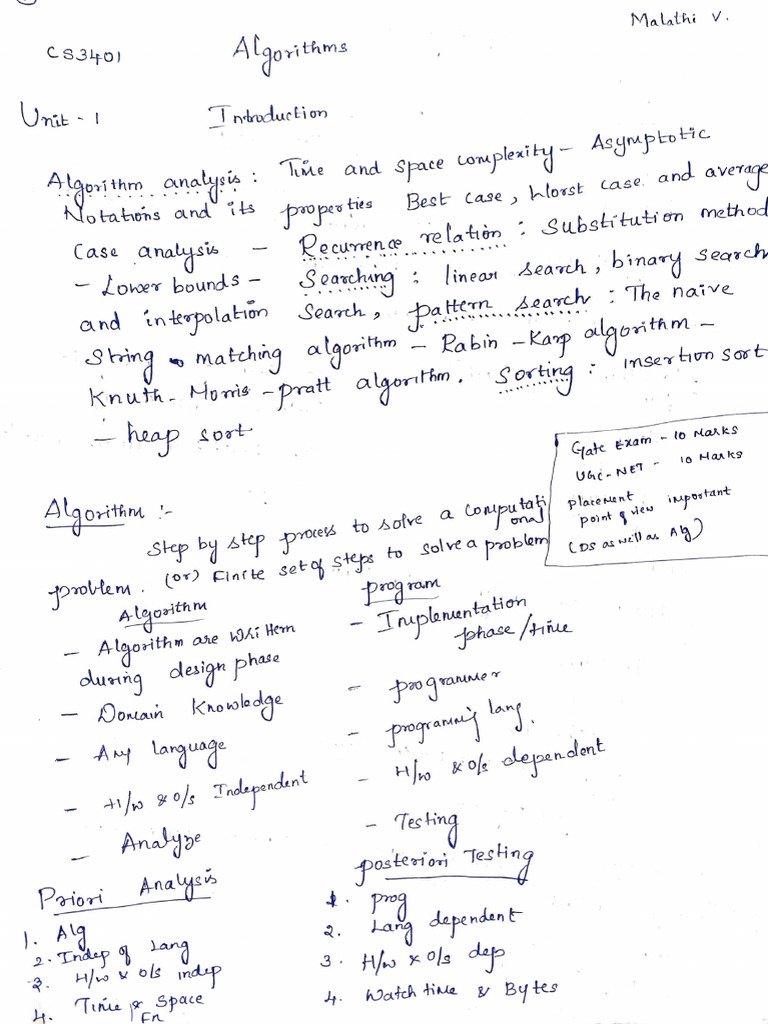 Malathi V.
CS3401 Algorithms
Unit - 1 Introduction
Algorithm analysis : Time and space complexity - Asymptotic
Notations and its properties Best case, Worst case and average
Case analysis - Recurrence relation : Substitution method
- Lower bounds - Searching : linear search, binary search
and interpolation Search, pattern search : The naive
String matching algorithm - Rabin - Karp algorithm -
Knuth - Morris - pratt algorithm. Sorting : insertion sort
- heap sort
Gate Exam - 10 Marks
UGC-NET - 10 Marks
placement
point of view important
(DS as well as Alg)
Algorithm :-
Step by step process to solve a computational
problem. (or) Finite set of steps to solve a problem
Algorithm
- Algorithm are written
during design phase
- Domain Knowledge
- Any language
- H/w & o/s Independent
- Analyze
program
- Implementation
phase/time
- programmer
- programming lang.
- H/w & o/s dependent
- Testing
Priori Analysis
1. Alg
2. Indep of Lang
3. H/w & o/s indep
4. Time & Space
Fn
posteriori Testing
1. prog
2. Lang dependent
3. H/w & o/s dep
4. Watch time & Bytes